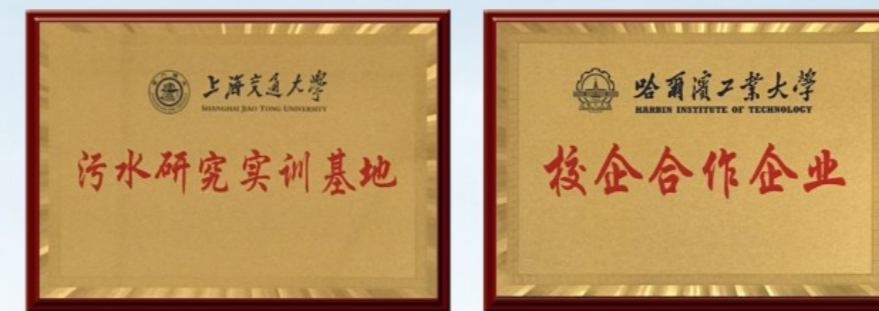 上海交通大學
SHANGHAI JIAO TONG UNIVERSITY
污水研究实训基地
哈爾濱工業大學
HARBIN INSTITUTE OF TECHNOLOGY
校企合作企业